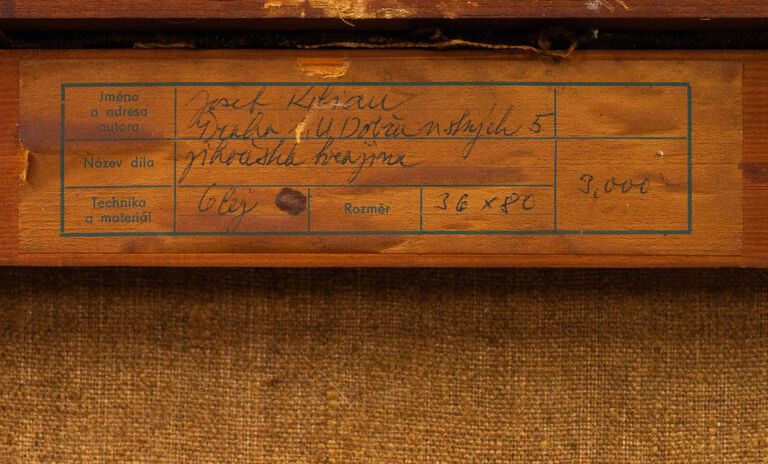 Jméno
a adresa
autora
Josef
Praha 1, U Dobřenských 5
Název díla
jihočeská krajina
Technika
a materiál
Olej
Rozměr
36 x 80
3,000